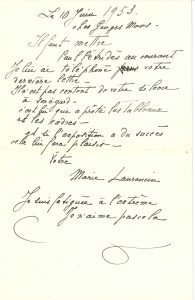 Le 10 Juin 1953.
cher Georges Moos -
Il faut mettre
Paul Pétridès au courant
Je lui ai téléphoné votre
dernière lettre -
Il n'est pas content de votre silence
à Imagés -
c'est lui qui a prêté les tableaux
et les cadres -
et si l'exposition a du succès
cela lui fera plaisir -
votre
Marie Laurencin
Je suis fatiguée à l'extrême
Je n'aime pas cela